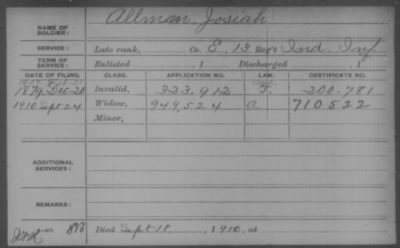 NAME OF SOLDIER: Altman, Josiah
SERVICE: Late rank, Co. E, 13 Reg't Ind. Inf.
TERM OF SERVICE: Enlisted , 1 Discharged , 1
DATE OF FILING. CLASS. APPLICATION NO. LAW. CERTIFICATE NO.
1879 Dec 20 Invalid, 333.912 F. 200.781
1910 Sept 24 Widow, 949,524 a 710522
Minor,
ADDITIONAL SERVICES:
REMARKS:
Died Sept 18, 1910, at